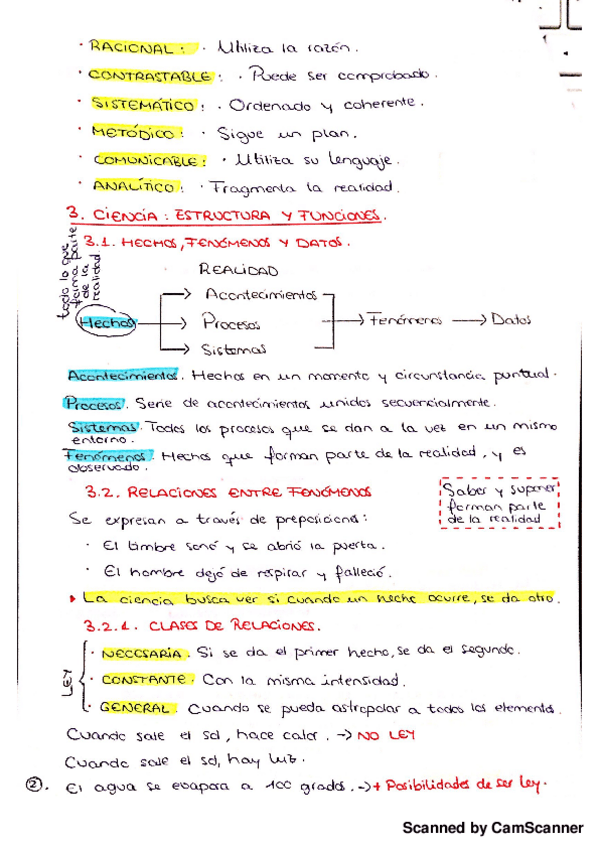 · RACIONAL: · Utiliza la razón.
· CONTRASTABLE: · Puede ser comprobado.
· SISTEMÁTICO: · Ordenado y coherente.
· METÓDICO: · Sigue un plan.
· COMUNICABLE: · Utiliza su lenguaje.
· ANALÍTICO: · Fragmenta la realidad.
3. CIENCIA: ESTRUCTURA Y FUNCIONES.
3.1. HECHOS, FENÓMENOS Y DATOS.
todo lo que
forma parte
de la
realidad
REALIDAD
Acontecimientos
Hechos → Procesos → Fenómenos → Datos
Sistemas
Acontecimientos. Hechos en un momento y circunstancia puntual.
Procesos. Serie de acontecimientos unidos secuencialmente.
Sistemas. Todos los procesos que se dan a la vez en un mismo
entorno.
Fenómenos. Hechos que forman parte de la realidad, y es
observado.
3.2. RELACIONES ENTRE FENÓMENOS
Saber y suponer
forman parte
de la realidad
Se expresan a través de preposiciones:
· El timbre sonó y se abrió la puerta.
· El hombre dejó de respirar y falleció.
▸ La ciencia busca ver si cuando un hecho ocurre, se da otro.
3.2.1. CLASES DE RELACIONES.
LEY
· NECESARIA. Si se da el primer hecho, se da el segundo.
· CONSTANTE. Con la misma intensidad.
· GENERAL. Cuando se pueda astropolar a todos los elementos.
Cuando sale el sol, hace calor. → NO LEY
Cuando sale el sol, hay luz.
②. El agua se evapora a 100 grados. → + Posibilidades de ser ley.
Scanned by CamScanner